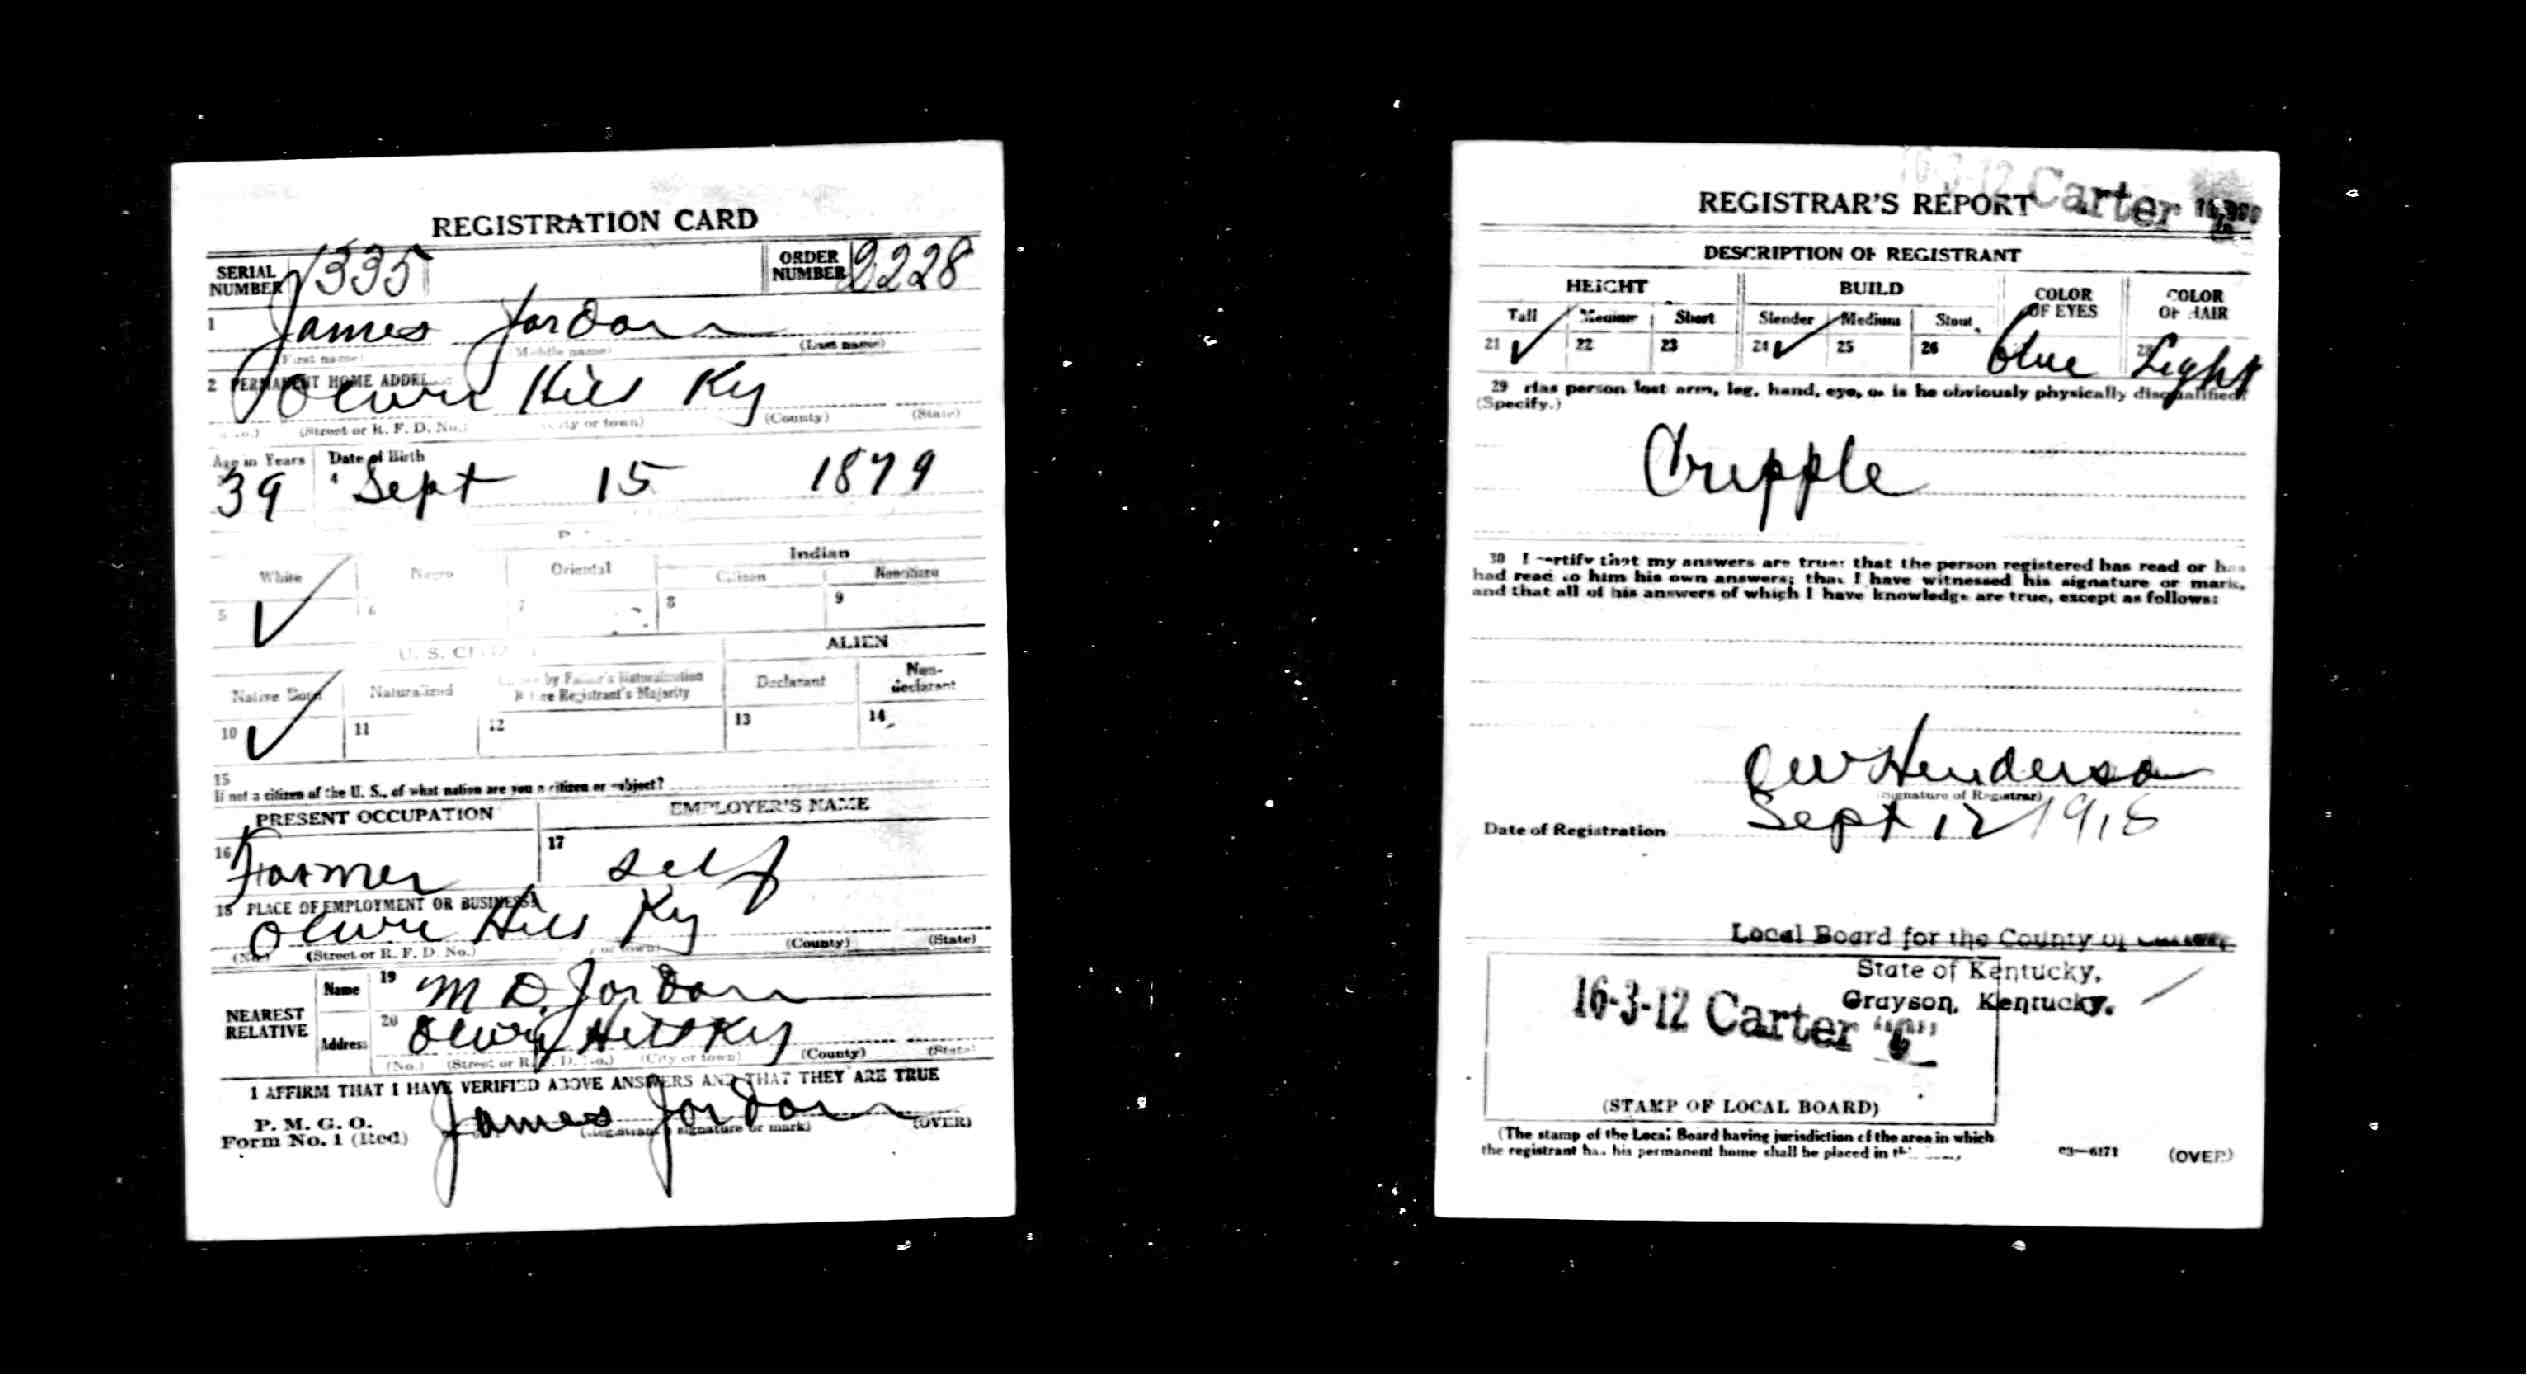 REGISTRATION CARD
SERIAL NUMBER 1335 ORDER NUMBER 2228
1 James Jordan
(First name) (Middle name) (Last name)
2 PERMANENT HOME ADDRESS:
Olive Hill Ky
(Street or R. F. D. No.) (City or town) (County) (State)
Age in Years Date of Birth
39 4 Sept 15 1879
Indian
White Negro Oriental Citizen Noncitizen
5 ✓ 6 7 8 9
U. S. CITIZEN ALIEN
Native Born Naturalized by Father's Naturalization Before Registrant's Majority Declarant Non-declarant
10 ✓ 11 12 13 14
15
If not a citizen of the U. S., of what nation are you a citizen or subject?
PRESENT OCCUPATION EMPLOYER'S NAME
16 Farmer 17 self
18 PLACE OF EMPLOYMENT OR BUSINESS:
Olive Hill Ky
(No.) (Street or R. F. D. No.) (City or town) (County) (State)
NEAREST RELATIVE Name 19 M D Jordan
Address 20 Olive Hill Ky
(No.) (Street or R. F. D. No.) (City or town) (County) (State)
I AFFIRM THAT I HAVE VERIFIED ABOVE ANSWERS AND THAT THEY ARE TRUE
P. M. G. O.
Form No. 1 (Red) James Jordan
(Registrant's signature or mark) (OVER)
16-3-12 Carter
REGISTRAR'S REPORT
DESCRIPTION OF REGISTRANT
HEIGHT BUILD COLOR OF EYES COLOR OF HAIR
Tall Medium Short Slender Medium Stout
21 ✓ 22 23 24 ✓ 25 26 blue 28 Light
29 Has person lost arm, leg, hand, eye, or is he obviously physically disqualified?
(Specify.)
Cripple
30 I certify that my answers are true; that the person registered has read or has
had read to him his own answers; that I have witnessed his signature or mark,
and that all of his answers of which I have knowledge are true, except as follows:
Henderson
(Signature of Registrar)
Date of Registration Sept 12 1918
Local Board for the County of
State of Kentucky,
Grayson, Kentucky.
16-3-12 Carter "C"
(STAMP OF LOCAL BOARD)
(The stamp of the Local Board having jurisdiction of the area in which
the registrant has his permanent home shall be placed in this
03—6171 (OVER)